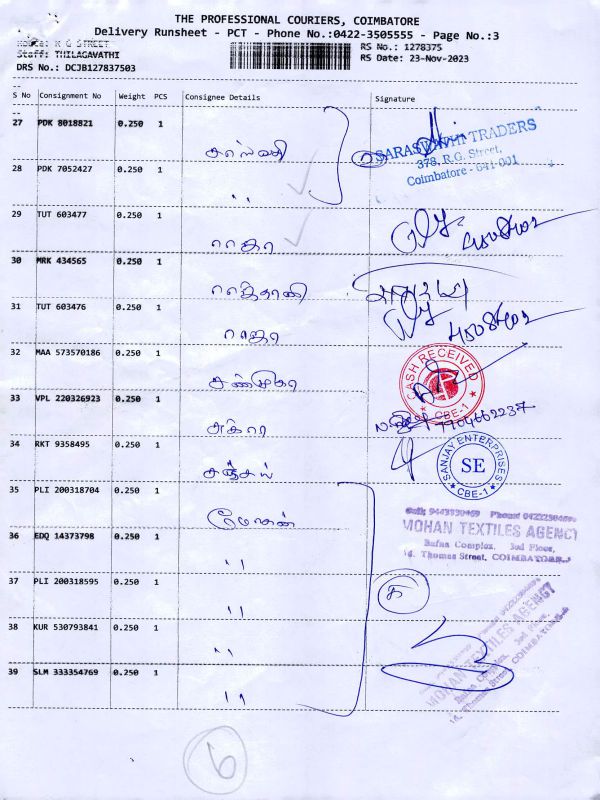 THE PROFESSIONAL COURIERS, COIMBATORE
Delivery Runsheet - PCT - Phone No.:0422-3505555 - Page No.:3
Route: K G STREET
Staff: THILAGAVATHI
DRS No.: DCJB127837503
RS No.: 1278375
RS Date: 23-Nov-2023
S No Consignment No Weight PCS Consignee Details Signature
27 PDK 8018821 0.250 1 சரஸ்வதி
SARASWATHI TRADERS
378, R.G. Street,
Coimbatore - 641 001
28 PDK 7052427 0.250 1 ''
29 TUT 603477 0.250 1 ராஜா 4508402
30 MRK 434565 0.250 1
31 TUT 603476 0.250 1 ராஜா 4508402
32 MAA 573570186 0.250 1 சண்முகா
CASH RECEIVED
CBE-1
33 VPL 220326923 0.250 1 7904662237
34 RKT 9358495 0.250 1 சஞ்சய்
SANJAY ENTERPRISES
SE
CBE-1
35 PLI 200318704 0.250 1 மோகன்
MOHAN TEXTILES AGENCY
Bafna Complex, 3rd Floor,
Thomas Street, COIMBATORE
36 EDQ 14373798 0.250 1 ''
37 PLI 200318595 0.250 1 ''
38 KUR 530793841 0.250 1 ''
MOHAN TEXTILES AGENCY
Bafna Complex, 3rd Floor,
Thomas Street, COIMBATORE
39 SLM 333354769 0.250 1 ''
6